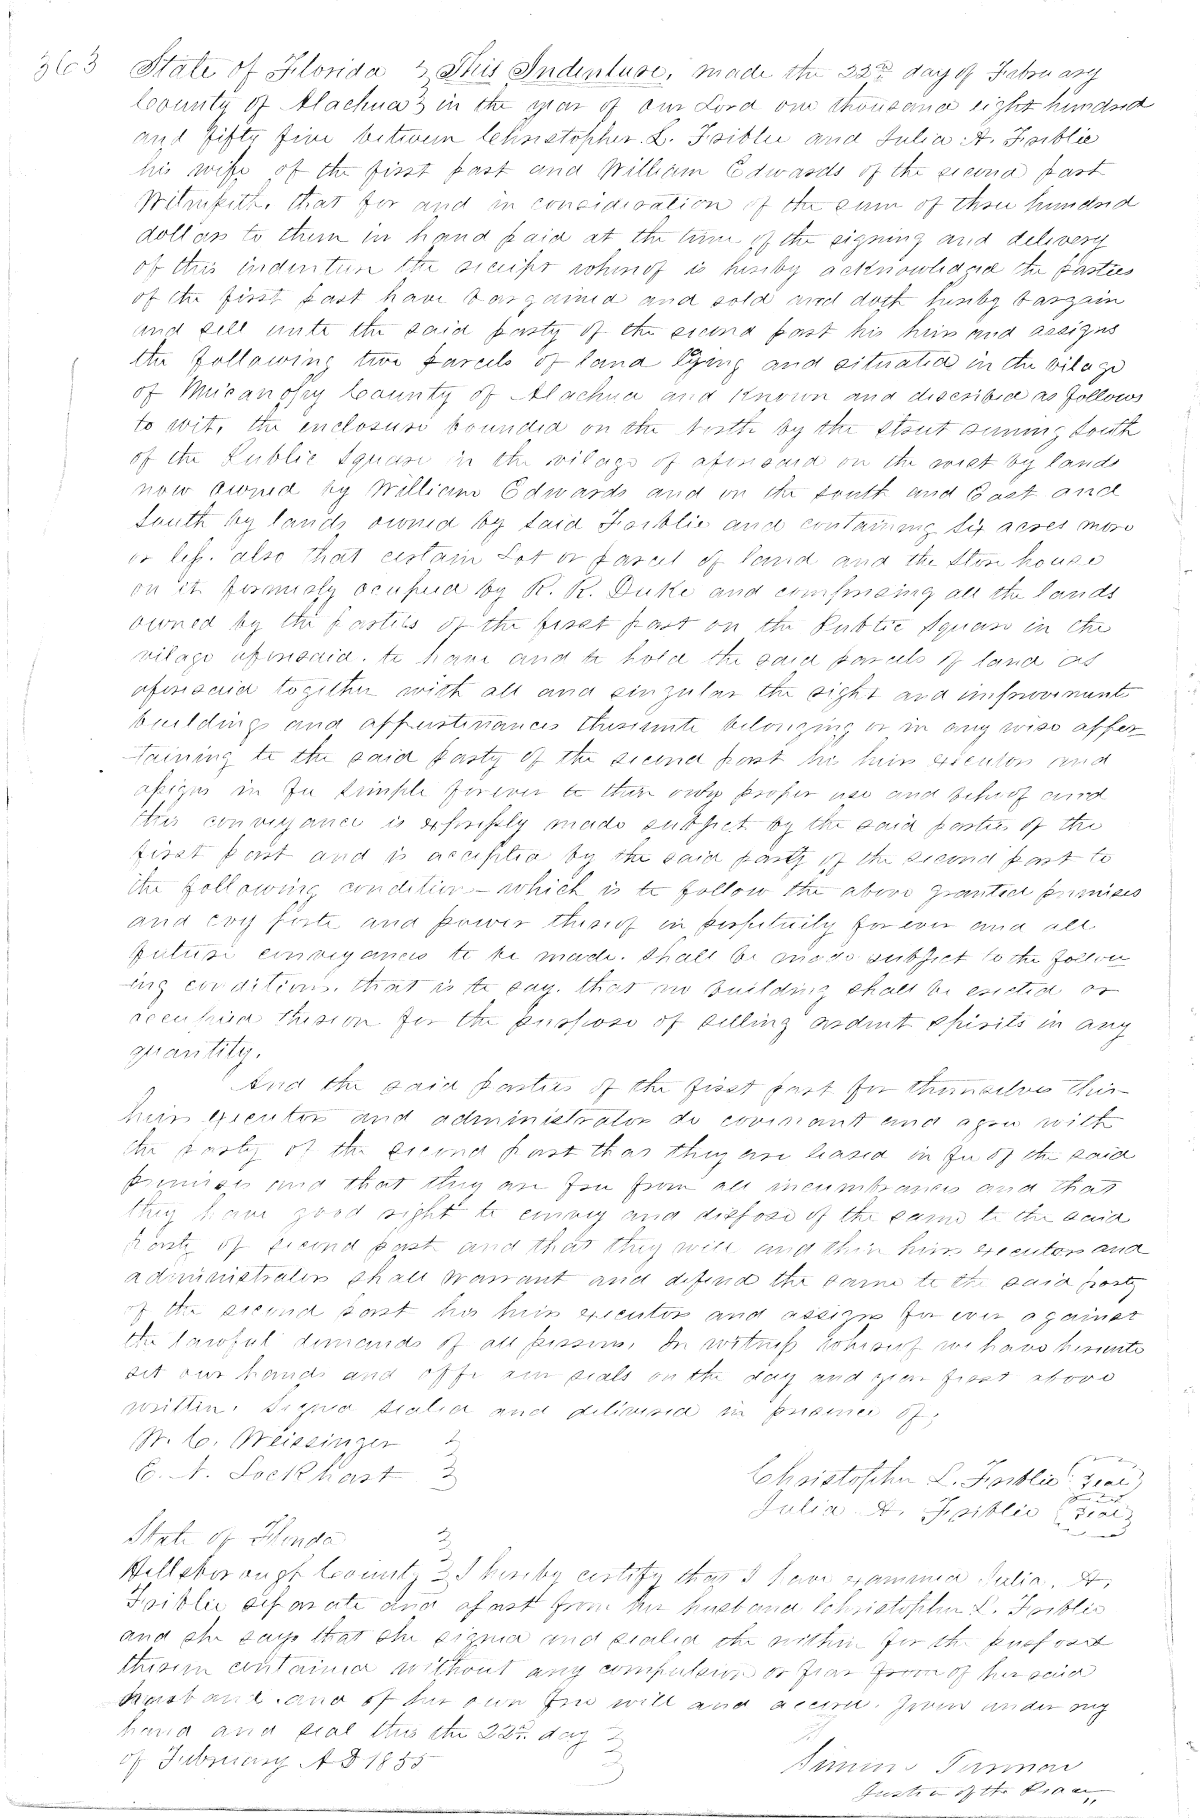 363
State of Florida } This Indenture, made the 22nd day of February
County of Alachua } in the year of our Lord one thousand eight hundred
and fifty five between Christopher L. Friblie and Julia A. Friblie
his wife of the first part and William Edwards of the second part
Witnesseth, that for and in consideration of the sum of three hundred
dollars to them in hand paid at the time of the signing and delivery
of this indenture the receipt whereof is hereby acknowledged the parties
of the first part have bargained and sold and doth hereby bargain
and sell unto the said party of the second part his heirs and assigns
the following two parcels of land lying and situated in the vilage
of Micanopy County of Alachua and known and described as follows
to wit, the enclosure bounded on the north by the street running South
of the Public Square in the vilage of aforesaid on the west by lands
now owned by William Edwards and on the south and East and
South by lands owned by said Friblie and containing six acres more
or less. also that certain Lot or parcel of land and the Store house
on it formerly ocupied by R. R. Duke and comprising all the lands
owned by the parties of the first part on the Public Square in the
vilage aforesaid. to have and to hold the said parcels of land as
aforesaid together with all and singular the right and improvements
buildings and appurtenances thereunto belonging or in any wise apper-
-taining to the said party of the second part his heirs executors and
assigns in fee simple forever to their only proper use and behoof and
this conveyance is expressly made subject by the said parties of the
first part and is accepted by the said party of the second part to
the following condition - which is to follow the above granted premises
and evy parte and power thereof in perpetuity for ever and all
future conveyances to be made. shall be made subject to the follow
-ing conditions. that is to say. that no building shall be erected or
occupied thereon for the purpose of selling ardent spirits in any
quantity.
And the said parties of the first part for themselves their
heirs executors and administrators do covenant and agree with
the party of the second part that they are seased in fee of the said
premises and that they are free from all incumbrances and that
they have good right to convey and dispose of the same to the said
party of second part and that they will and their heirs executors and
administrators shall warrant and defend the same to the said party
of the second part his heirs executors and assigns for ever against
the lawful demands of all persons. In witness whereof we have hereunto
set our hands and affx our seals on the day and year first above
written. Signed sealed and delivered in presence of;
W. C. Weissinger }
E. A. Lockhart }
Christopher L. Friblie (Seal)
Julia A. Friblie (Seal)
State of Florida }
Hillsborough County } I hereby certify that I have examined Julia. A.
Friblie seperate and apart from her husband Christopher L. Friblie
and she says that she signed and sealed the within for the purposed
therein contained without any compulsion or fear from of her said
husband. and of her own free will and accord. Given under my
hand and seal this the 22nd day }
of February AD 1855
Simon Turman
Justice of the Peace